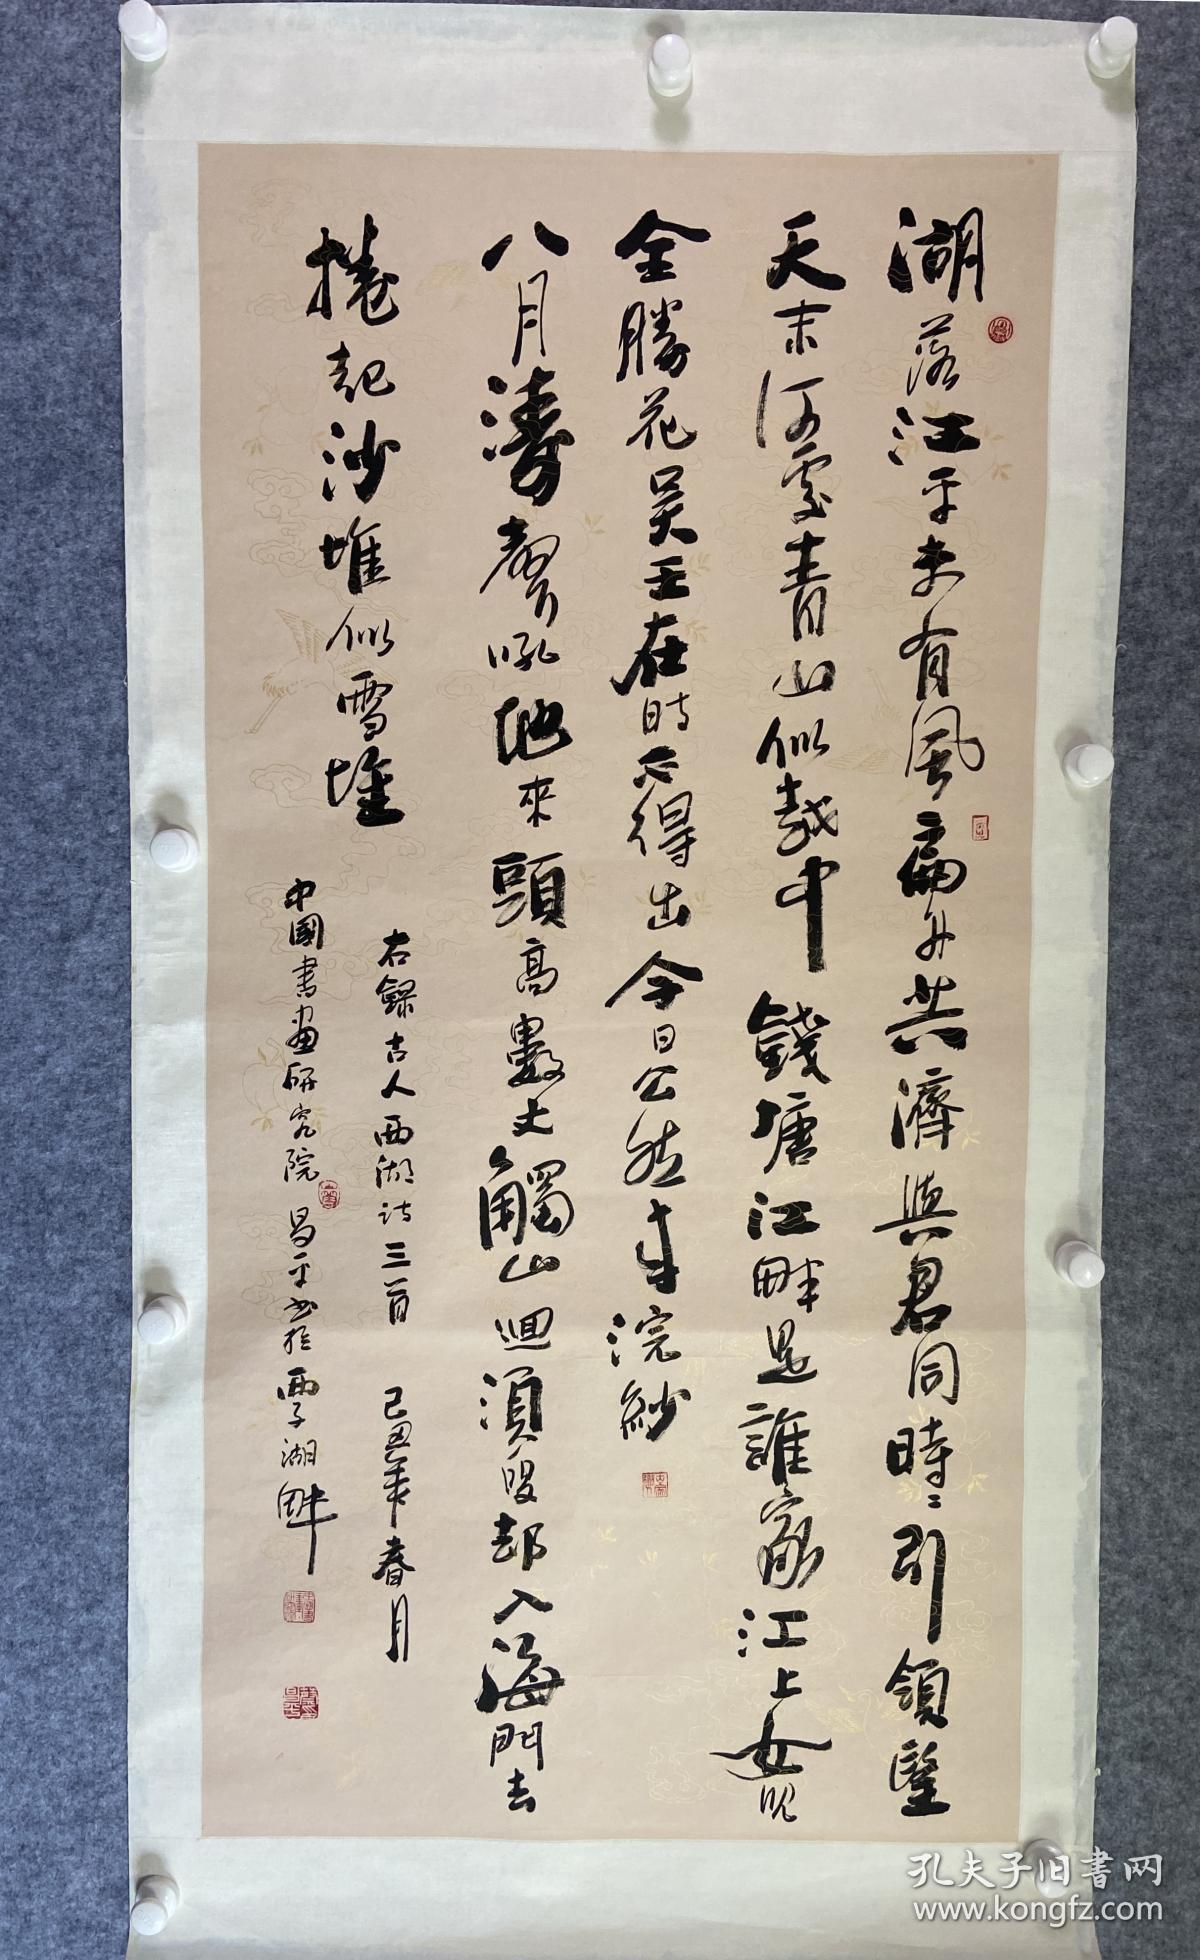 湖落江平未有風扁舟共濟與君同時時引領望
天末何處青山似越中錢塘江畔是誰家江上女兒
全勝花吴王在時不得出今日公然来浣紗
八月濤聲吼地來頭高數丈觸山迴須臾却入海門去
捲起沙堆似雪堆
右錄古人西湖诗三首 己丑年春月
中國書畫研究院 昌平书於西子湖畔
孔夫子旧書网
www.kongfz.com